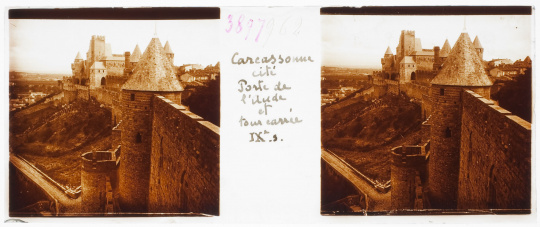 Carcassonne
cité
Porte de
l'Aude
et
tour carrée
IXe s.